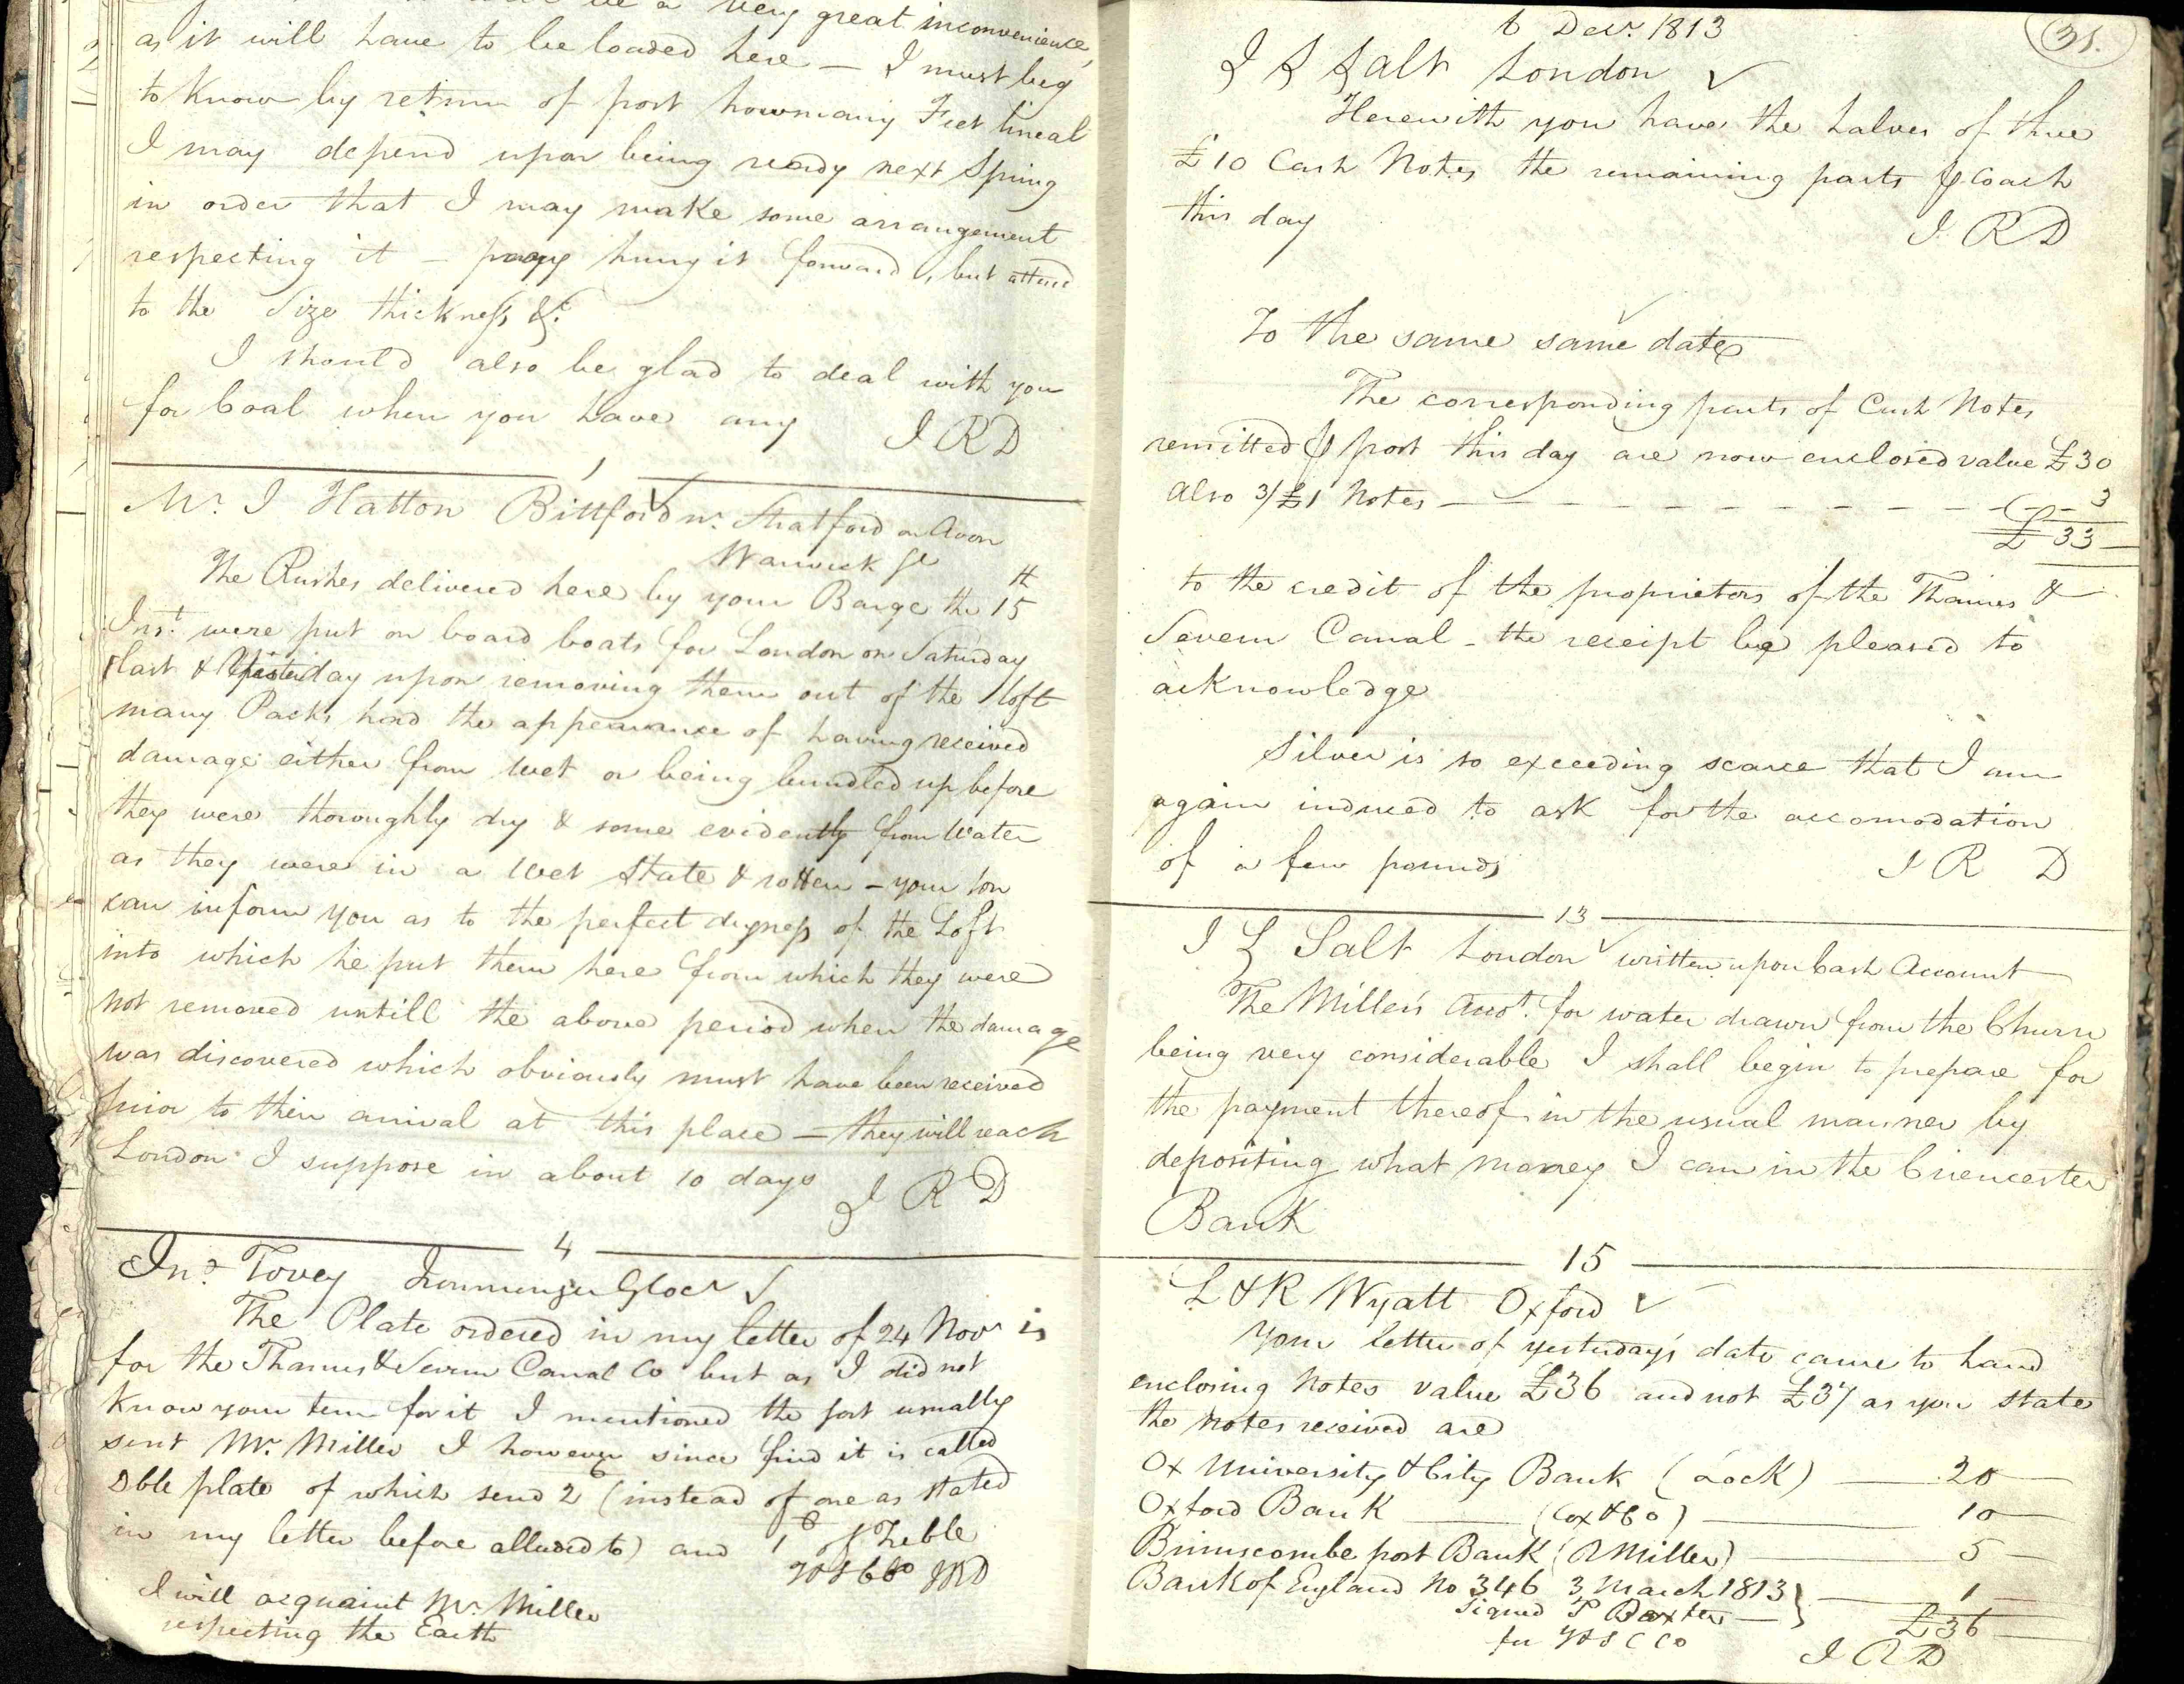 a very great inconvenience,
as it will have to be loaded here – I must beg
to know by return of post howmany Feet lineal
I may depend upon being ready next Spring
in order that I may make some arrangement
respecting it – pray hurry it forward, but attend
to the Size thickness &c.
I should also be glad to deal with you
for Coal when you have any I R D
1
Mr. I Hatton Bittford nr. Stratford on Avon
Warwick
The Rushes delivered here by your Barge the 15th
Inst. were put on board boats for London on Saturday
last & Yesterday upon removing them out of the loft
many Packs had the appearance of having received
damage either from Wet or being bundled up before
they were thoroughly dry & some evidently from Water
as they were in a Wet State & rotten – your son
can inform you as to the perfect dryness of the Loft
into which he put them here from which they were
not removed untill the above period when the damage
was discovered which obviously must have been received
prior to their arrival at this place – they will reach
London I suppose in about 10 days I R D
4
Jno. Tovey Ironmonger Glocr
The Plate ordered in my letter of 24 Novr is
for the Thames & Severn Canal Co but as I did not
know your term for it I mentioned the sort usually
sent Mr. Miller I however since find it is called
Dble plate of which send 2 (instead of one as stated
in my letter before alluded to) and 1 of Treble
T&SCCo IRD
I will acquaint Mr. Miller
respecting the Earth
6 Decr. 1813
31.
I L Salt London
Herewith you have the halves of three
£10 Cash Notes the remaining parts ⅌ Coach
this day I. R D
To the same same date
The corresponding parts of Cash Notes
remitted ⅌ post this day are now enclosed value £30
Also 3/£1 Notes – – – – – – – – – – – 3
£33 –
to the credit of the proprietors of the Thames &
Severn Canal – the receipt be pleased to
acknowledge
Silver is so exceeding scarce that I am
again induced to ask for the accomodation
of a few pounds I R D
13
I L Salt London written upon Cash Account
The Miller's Accot. for water drawn from the Churn
being very considerable I shall begin to prepare for
the payment thereof in the usual manner by
depositing what money I can in the Cirencester
Bank
15
L & R Wyatt Oxford
Your letter of yesterday's date came to hand
enclosing Notes value £36 and not £37 as you state
the notes received are
Ox University & City Bank (Lock) — 20 —
Oxford Bank — (Cox & Co) — 10 —
Brimscombe port Bank (R Miller) — 5 —
Bank of England No 346 3 March 1813 } — 1 —
Signed P Baxter —
£36 —
for T&SCCo
I R D